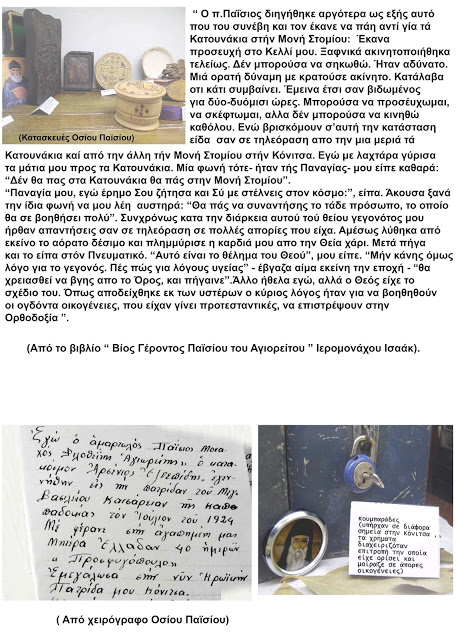 “ Ο π.Παϊσιος διηγήθηκε αργότερα ως εξής αυτό
που του συνέβη και τον έκανε να πάη αντί γία τά
Κατουνάκια στήν Μονή Στομίου: Έκανα
προσευχή στο Κελλί μου. Ξαφνικά ακινητοποιήθηκα
τελείως. Δέν μπορούσα να σηκωθώ. Ήταν αδύνατο.
Μιά ορατή δύναμη με κρατούσε ακίνητο. Κατάλαβα
οτι κάτι συμβαίνει. Έμεινα έτσι σαν βιδωμένος
για δύο-δυόμισι ώρες. Μπορούσα να προσέυχωμαι,
να σκέφτωμαι, αλλα δέν μπορούσα να κινηθώ
καθόλου. Ενώ βρισκόμουν σ’αυτή την κατάσταση
είδα σαν σε τηλεόραση απο την μια μεριά τά
(Κατασκευές Οσίου Παϊσίου)
Κατουνάκια καί από την άλλη τήν Μονή Στομίου στήν Κόνιτσα. Εγώ με λαχτάρα γύρισα
τα μάτια μου προς τα Κατουνάκια. Μία φωνή τότε- ήταν τής Παναγίας- μου είπε καθαρά:
“Δέν θα πας στα Κατουνάκια θα πάς στην Μονή Στομίου”.
“Παναγία μου, εγώ έρημο Σου ζήτησα και Σύ με στέλνεις στον κόσμο:”, είπα. Άκουσα ξανά
την ίδια φωνή να μου λέη αυστηρά: “Θα πάς να συναντήσης το τάδε πρόσωπο, το οποίο
θα σε βοηθήσει πολύ”. Συνχρόνως κατα την διάρκεια αυτού τού θείου γεγονότος μου
ήρθαν απαντήσεις σαν σε τηλεόραση σε πολλές απορίες που είχα. Αμέσως λύθηκα από
εκείνο το αόρατο δέσιμο και πλημμύρισε η καρδιά μου απο την Θεία χάρι. Μετά πήγα
και το είπα στόν Πνευματικό. “Αυτό είναι το θέλημα του Θεού”, μου είπε. “Μήν κάνης όμως
λόγο για το γεγονός. Πές πώς για λόγους υγείας” - έβγαζα αίμα εκείνη την εποχή - “θα
χρειασθεί να βγης απο το Όρος, και πήγαινε”.Άλλο ήθελα εγώ, αλλά ο Θεός είχε το
σχέδιο του. Όπως αποδείχθηκε εκ των υστέρων ο κύριος λόγος ήταν για να βοηθηθούν
οι ογδόντα οικογένειες, που είχαν γίνει προτεσταντικές, να επιστρέψουν στην
Ορθοδοξία ”.
(Από το βιβλίο “ Βίος Γέροντος Παϊσίου του Αγιορείτου ” Ιερομονάχου Ισαάκ).
Ἐγὼ ὁ ἁμαρτωλὸς Παΐσιος Μονα-
χὸς Φιλοθεΐτης (Ἁγιορίτης), ὁ κατὰ
κόσμον Ἀρσένιος Ἐζνεπίδης, ἐγεν-
νήθην εἰς τὴ πατρίδαν τοῦ Μεγ.
Βασιλείου Καισάρειαν τῆς Καπ-
παδοκίας τὸν Ἰούλιον τοῦ 1924
Μὲ γέρανε στὴ ἀγαπητή μας
Μητέρα Ἑλλάδαν 40 ἡμερῶν
« Προσφυγόπουλο»
Ἐμεγάλωσα στὴ νῦν Ἡρωϊκὴν
Πατρίδα μου Κόνιτσα.
κουμπαράδες
(υπήρχαν σε διάφορα
σημεία στην Κόνιτσα
τα χρήματα
διαχειριζόταν
επιτροπή την οποία
είχε ορίσει και
μοίραζε σε άπορες
οικογένειες)
( Από χειρόγραφο Οσίου Παϊσίου)